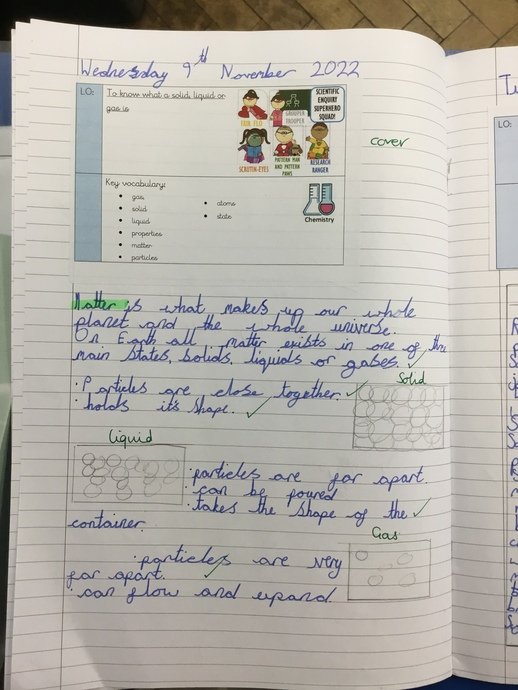 Wednesday 9th November 2022
LO:
To know what a solid, liquid or
gas is
FAIR FLO
GROUPER
TROOPER
SCIENTIFIC
ENQUIRY
SUPERHERO
SQUAD!
SCRUTIN-EYES
PATTERN MAN
AND PATTERN
PAWS
RESEARCH
RANGER
cover
Key vocabulary:
gas
solid
liquid
properties
matter
particles
atoms
state
Chemistry
Matter is what makes up our whole
planet and the whole universe.
On Earth all matter exists in one of three
main states, solids, liquids or gases.
Solid
· Particles are close together.
· holds its shape.
Liquid
· particles are far apart.
· can be poured
· takes the shape of the
container.
Gas
· particles are very
far apart.
· can flow and expand.
LO: